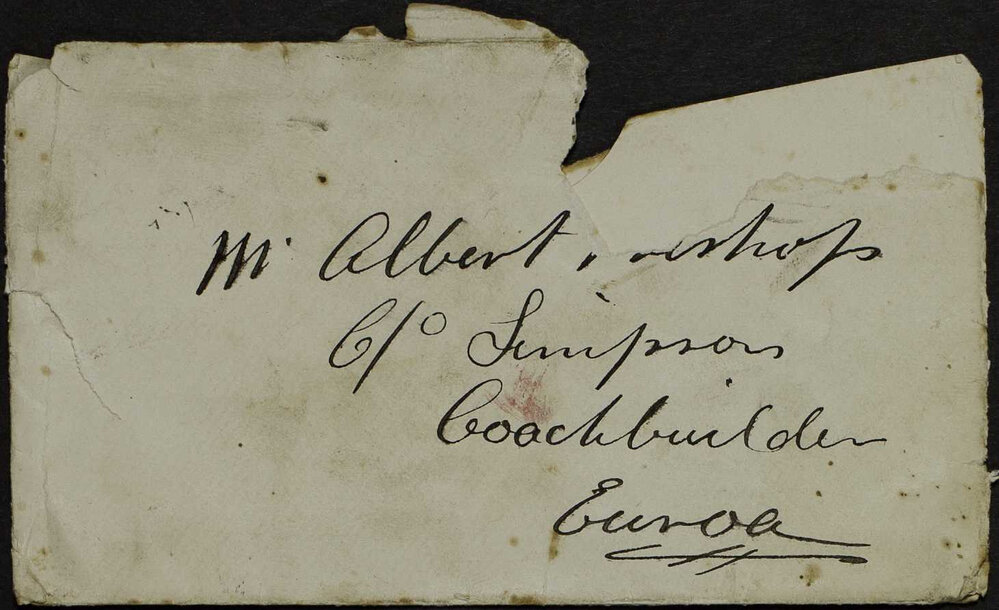 Mr Albert
C/o Simpson
Coachbuilder
Euroa